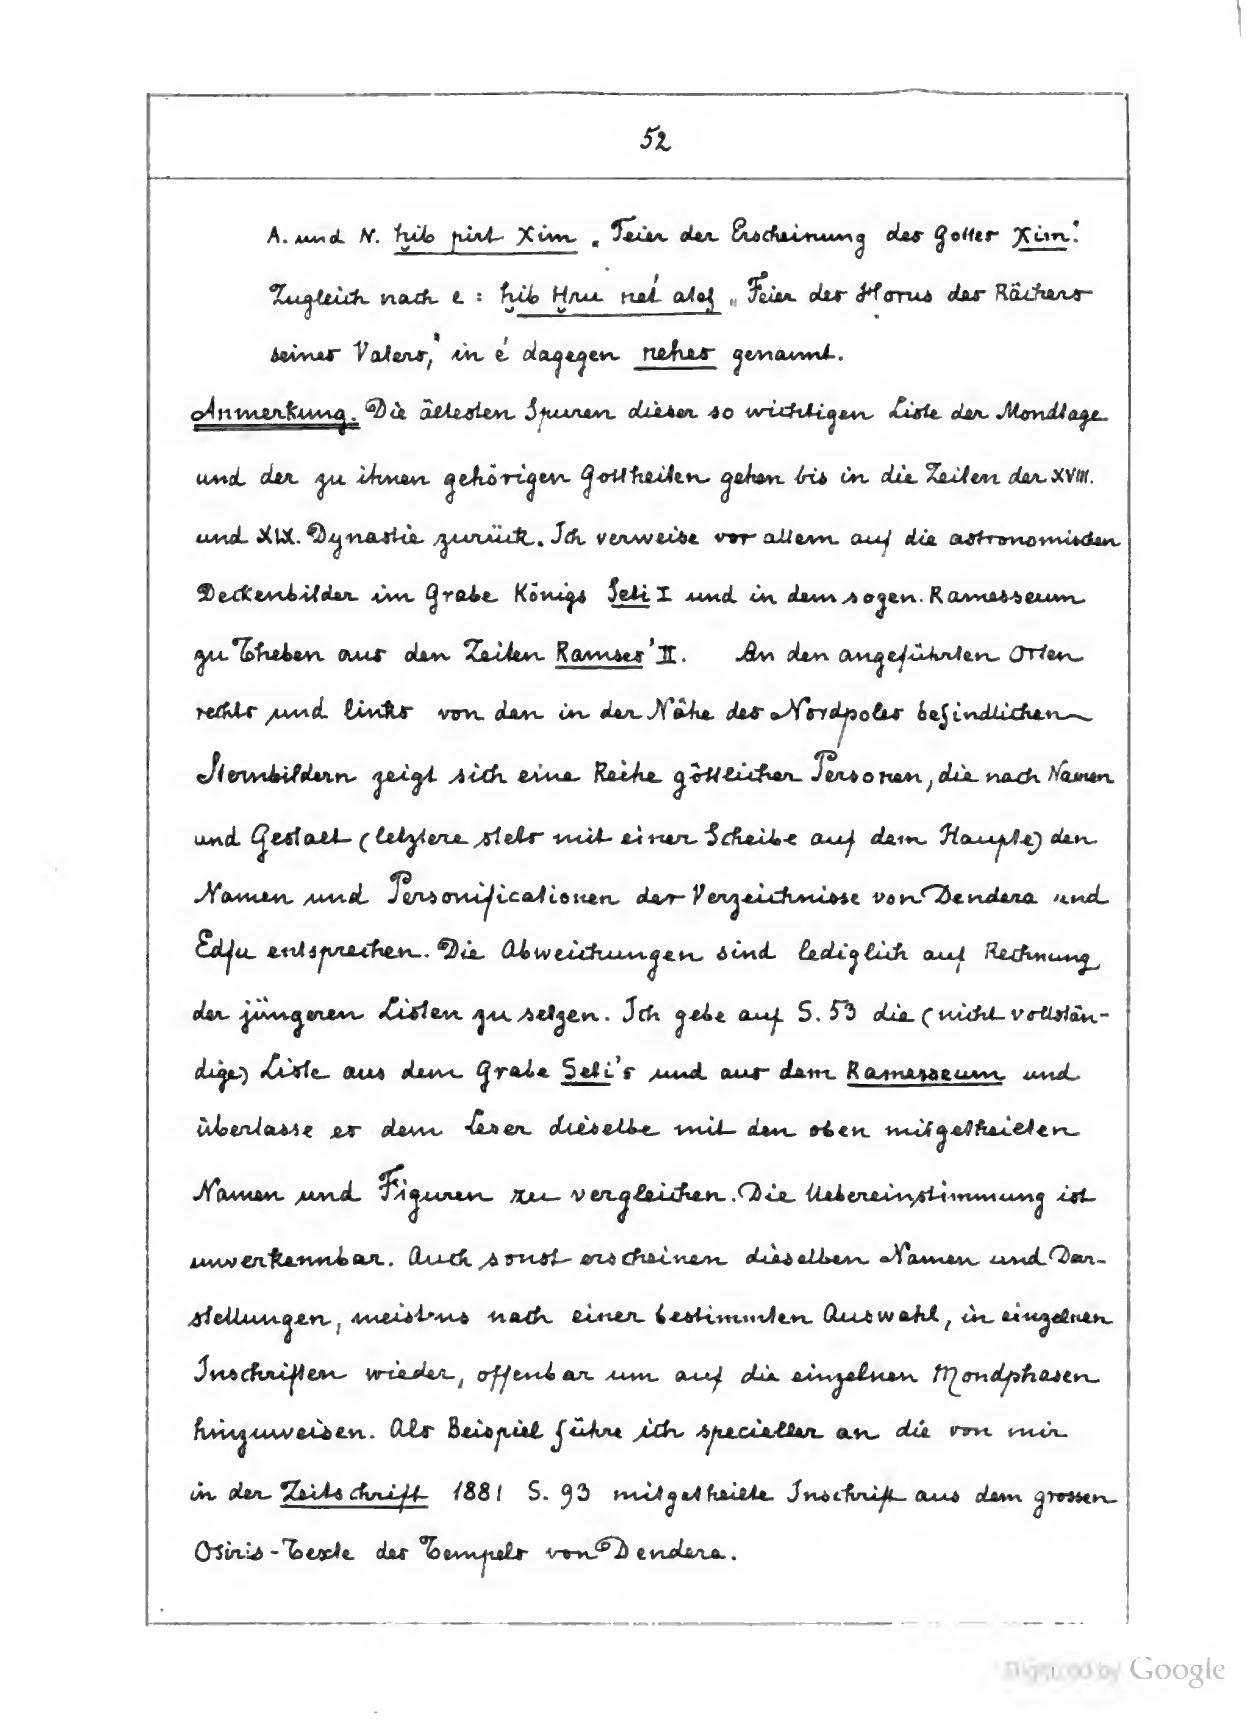 52
A. und N. ḥib pirt Xim „Feier der Erscheinung des Gottes Xim“.
Zugleich nach e : ḥib Ḥru net atef „Feier des Horus des Rächers
seines Vaters,“ in é dagegen nehes genannt.
Anmerkung. Die ältesten Spuren dieser so wichtigen Liste der Mondtage
und der zu ihnen gehörigen Gottheiten gehen bis in die Zeiten der XVIII.
und XIX. Dynastie zurück. Ich verweise vor allem auf die astronomischen
Deckenbilder im Grabe Königs Seti I und in dem sogen. Ramesseum
zu Theben aus den Zeiten Ramses' II. An den angeführten Orten
rechts und links von den in der Nähe des Nordpoles befindlichen
Sternbildern zeigt sich eine Reihe göttlicher Personen, die nach Namen
und Gestalt (letztere stets mit einer Scheibe auf dem Haupte) den
Namen und Personificationen der Verzeichnisse von Dendera und
Edfu entsprechen. Die Abweichungen sind lediglich auf Rechnung
der jüngeren Listen zu setzen. Ich gebe auf S. 53 die (nicht vollstän-
dige) Liste aus dem Grabe Seti's und aus dem Ramesseum und
überlasse es dem Leser dieselbe mit den oben mitgetheilten
Namen und Figuren zu vergleichen. Die Uebereinstimmung ist
unverkennbar. Auch sonst erscheinen dieselben Namen und Dar-
stellungen, meistens nach einer bestimmten Auswahl, in einzelnen
Inschriften wieder, offenbar um auf die einzelnen Mondphasen
hinzuweisen. Als Beispiel führe ich specieller an die von mir
in der Zeitschrift 1881 S. 93 mitgetheilte Inschrift aus dem grossen
Osiris-Texte des Tempels von Dendera.
Digitized by Google